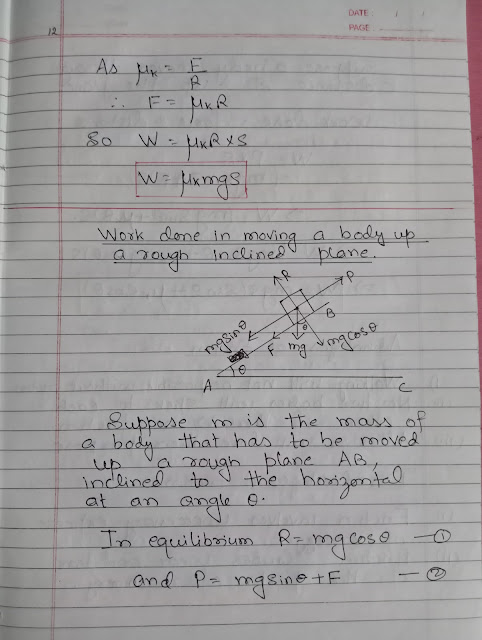 DATE
PAGE
12
As μk = F/R
∴ F = μkR
So W = μkR×S
W = μkmgS
Work done in moving a body up
a rough inclined plane.
R
P
B
θ
mgsinθ
F
mg
mgcosθ
θ
A
C
Suppose m is the mass of
a body that has to be moved
up a rough plane AB,
inclined to the horizontal
at an angle θ.
In equilibrium R = mgcosθ —①
and P = mgsinθ+F —②